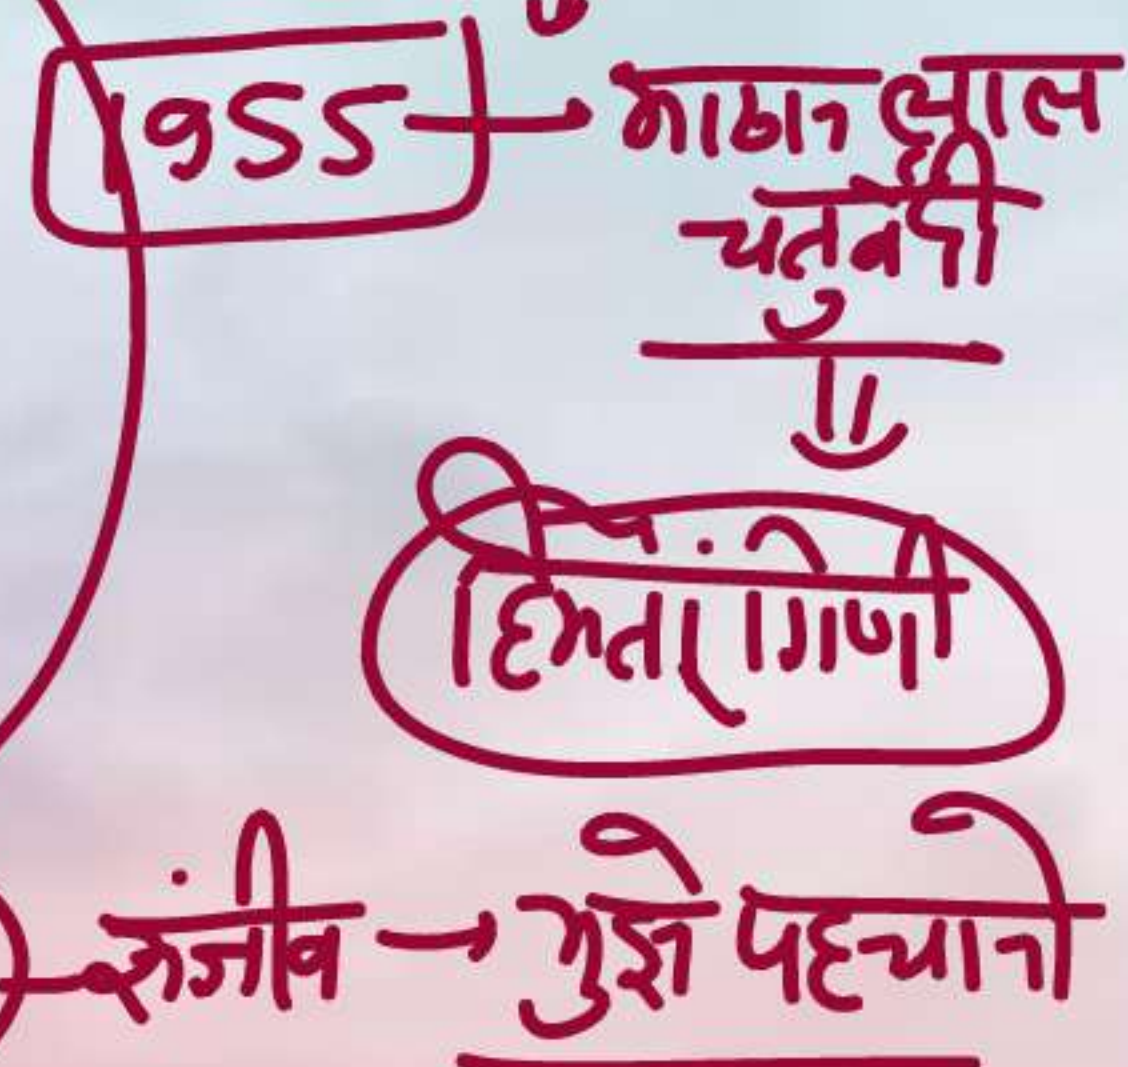 1955 → माखन लाल
चतुर्वेदी
हिमतरंगिणी
संजीव → मुझे पहचानो